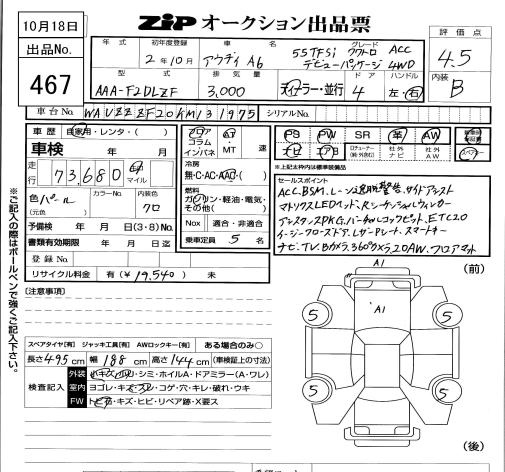 10月18日
出品No.
467
ZIP オークション出品票
評価点
4.5
内装
B
年式 初年度登録 車名 グレード
2年10月 アウディ A6 55TFSi クワトロ ACC
デビューパッケージ 4WD
型式 排気量 ドア ハンドル
AAA-F2DLZF 3,000 ディーラー・並行 4 左・右
車台No. WAUZZZF20KN131975 シリアルNo.
車歴 自家用・レンタ・( )
車検 年 月
走行 73,680 km マイル
色 パール カラーNo. 内装色
(元色) クロ
予備検 年 月 日(3・8)No.
書類有効期限 年 月 日迄
登録No.
リサイクル料金 有(¥19,540) 未
フロア コラム インパネ
AT・MT 速
冷房
無・C・AC・AAC・( )
燃料
ガソリン・軽油・電気・その他( )
Nox 適合・非適合
乗車定員 5 名
PS PW SR 革 AW
ナビ エアB 社外ナビ 社外AW
※上記太わく内は標準装備品
セールスポイント
ACC.BSM.レーン逸脱警告.サイドアシスト
マトリックスLEDヘッド.Rシーケンシャルウィンカー
アシスタンスPKG.バーチャルコックピット.ETC2.0
イージークローズドア.レザーPシート.スマートキー
ナビ.TV.Bカメラ.360°カメラ.20AW.フロアマット
※ご記入の際はボールペンで強くご記入下さい。
[注意事項]
A1
(前)
A1
5
5
5
5
(後)
スペアタイヤ[有] ジャッキ工具[有] AWロックキー[有] ある場合のみ○
長さ 495 cm 幅 188 cm 高さ 144 cm (車検証上の寸法)
検査記入
外装 小キズ・凹・シミ・ホイルA・ドアミラー(A・ワレ)
室内 ヨゴレ・キズ・スレ・コゲ・穴・キレ・破れ・ウキ
FW トビ石・キズ・ヒビ・リペア跡・X要ス